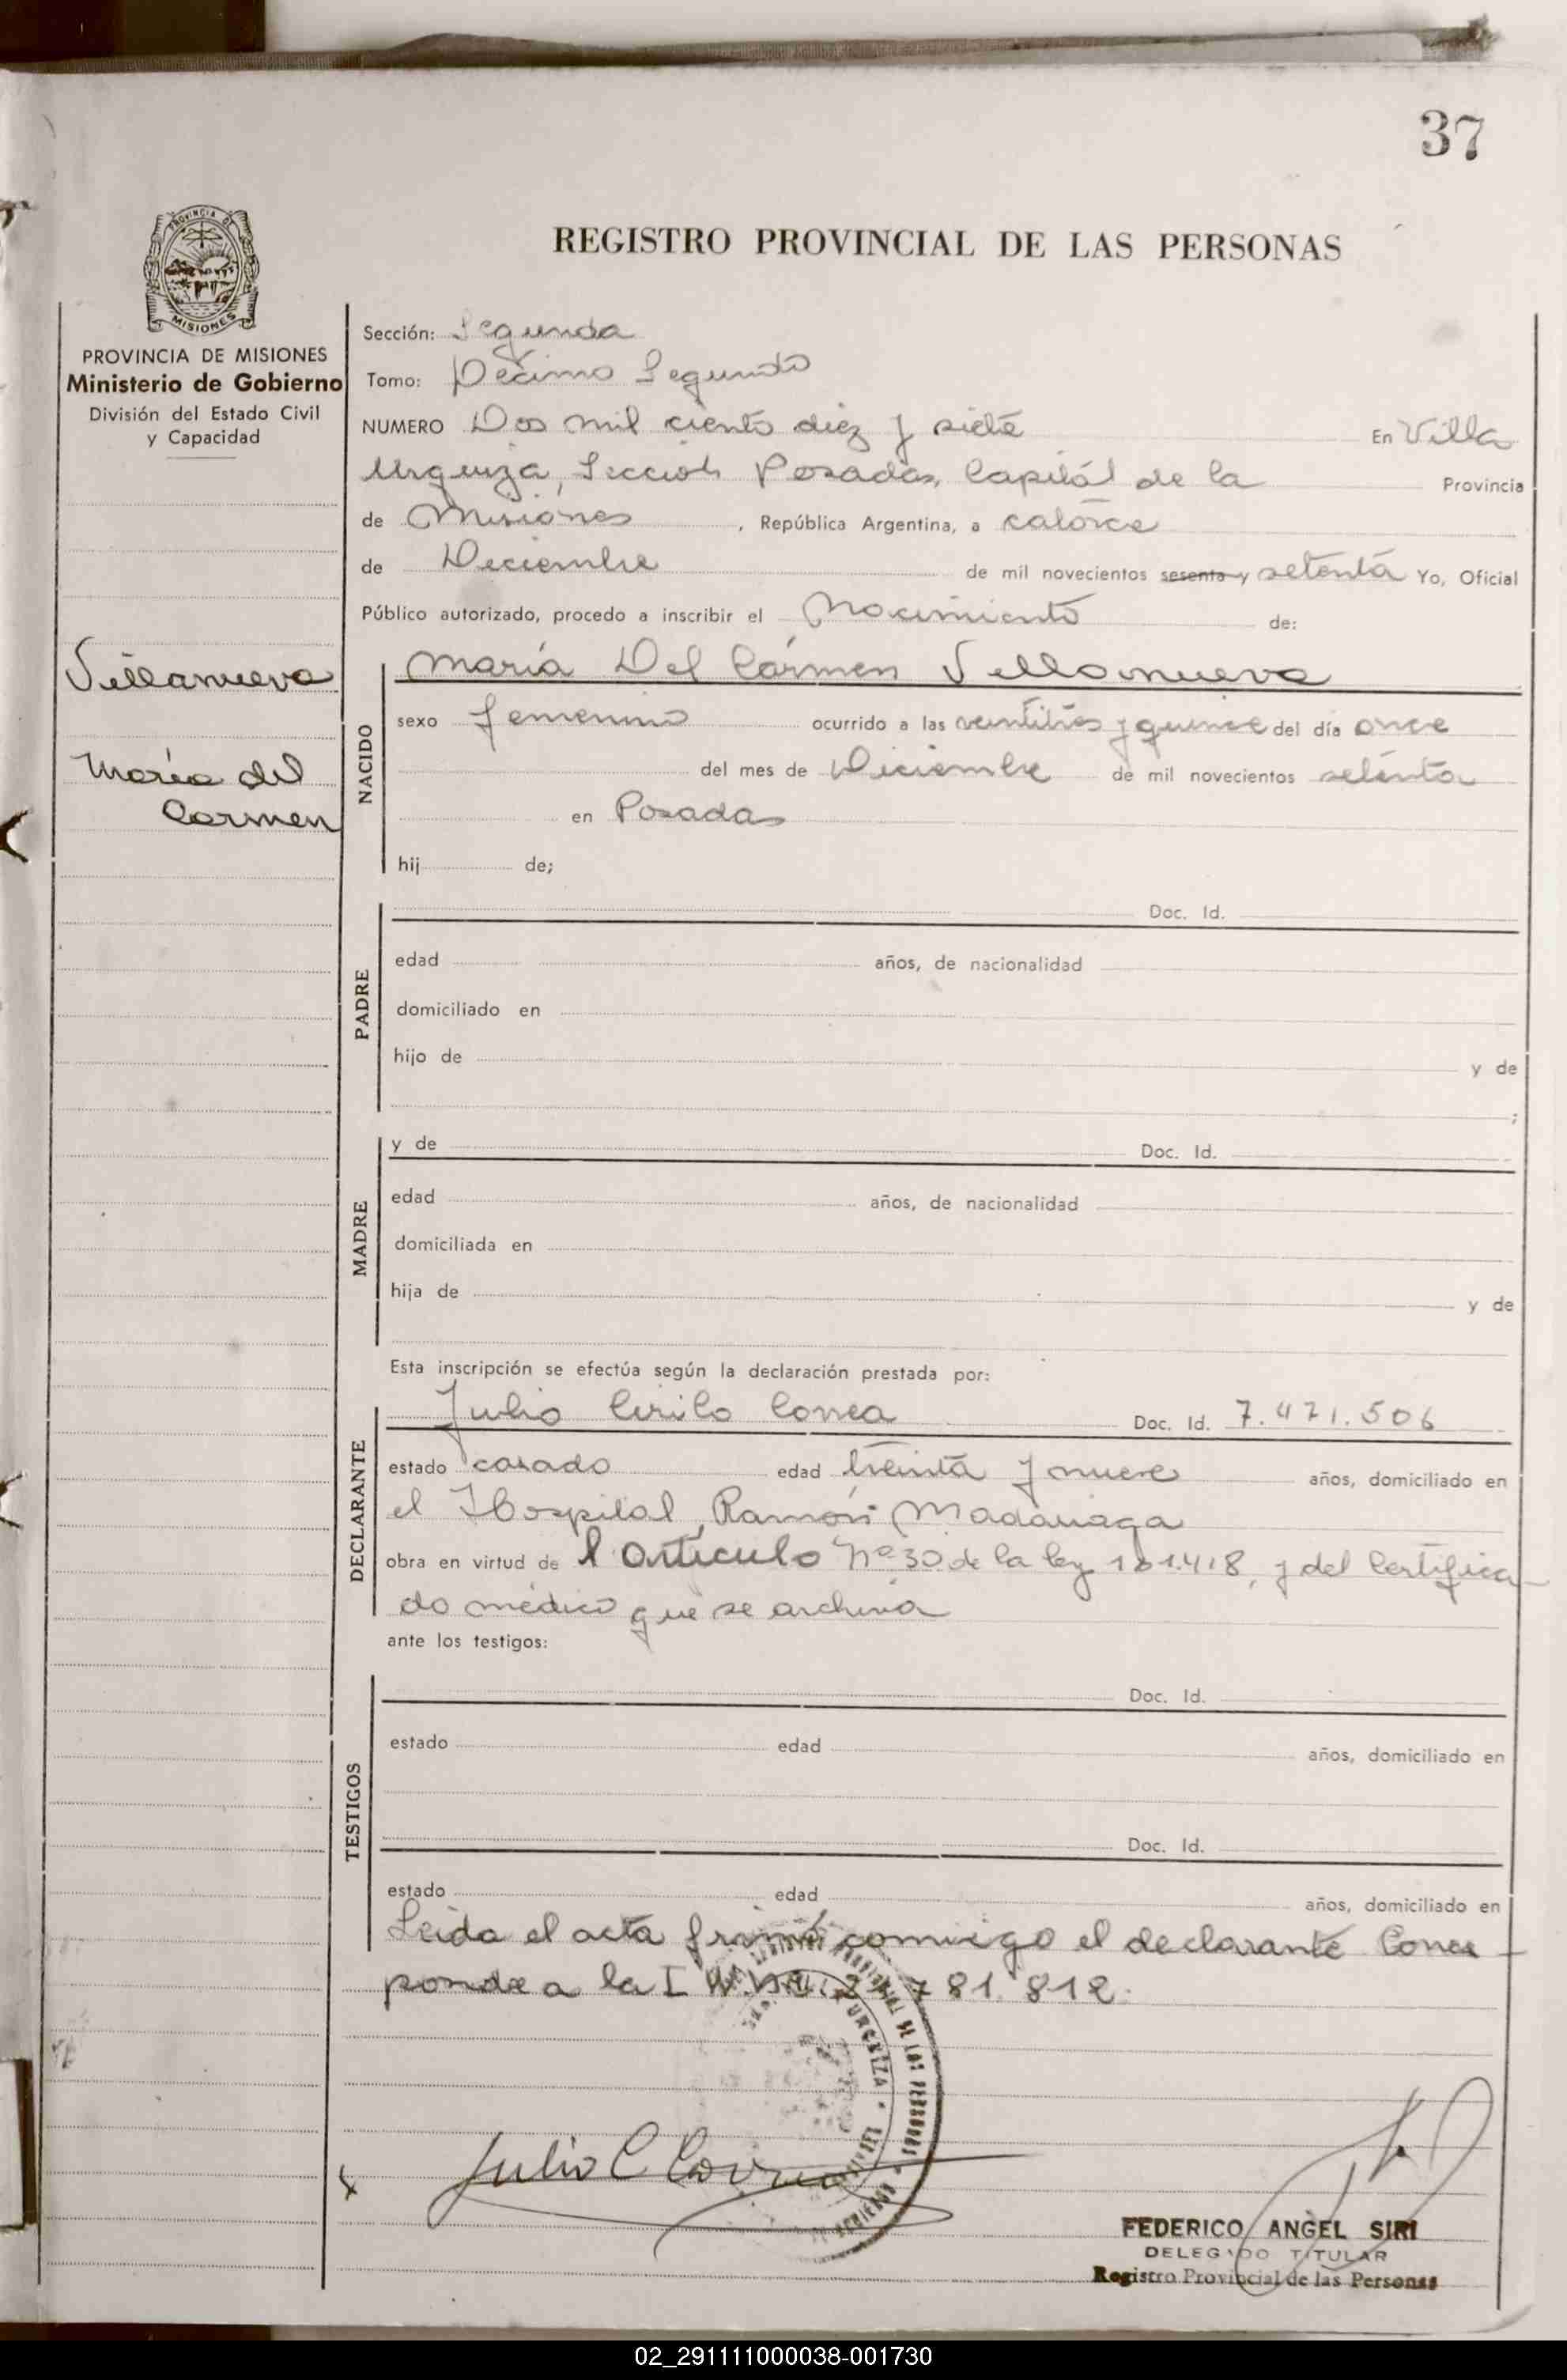 37
REGISTRO PROVINCIAL DE LAS PERSONAS
PROVINCIA DE MISIONES
PROVINCIA DE MISIONES
Ministerio de Gobierno
División del Estado Civil
y Capacidad
Villanueva
María del
Carmen
Sección: Segunda
Tomo: Décimo Segundo
NUMERO Dos mil ciento diez y siete En Villa
Urquiza, Sección Posadas, Capitál de la Provincia
de Misiones, República Argentina, a catorce
de Deciembre de mil novecientos sesenta y setenta Yo, Oficial
Público autorizado, procedo a inscribir el Nacimiento de:
NACIDO
María Del Cármen Villanueva
sexo femenino ocurrido a las veintitrés y quince del día once
del mes de Diciembre de mil novecientos setenta
en Posadas
hij de;
PADRE
Doc. Id.
edad años, de nacionalidad
domiciliado en
hijo de y de
;
MADRE
y de Doc. Id.
edad años, de nacionalidad
domiciliada en
hija de y de
Esta inscripción se efectúa según la declaración prestada por:
DECLARANTE
Julio Cirilo Correa Doc. Id. 7.471.506
estado casado edad treinta y nueve años, domiciliado en
el Hospital, Ramón Madariaga
obra en virtud de l artículo Nº 30 de la ley y del Certifica
do médico que se archiva
ante los testigos:
TESTIGOS
Doc. Id.
estado edad años, domiciliado en
Doc. Id.
estado edad años, domiciliado en
Leida el acta firmó conmigo el declarante Corres
ponde a la 781.812.
Julio C Correa
FEDERICO ANGEL SIRI
DELEGADO TITULAR
Registro Provincial de las Personas
02_291111000038-001730